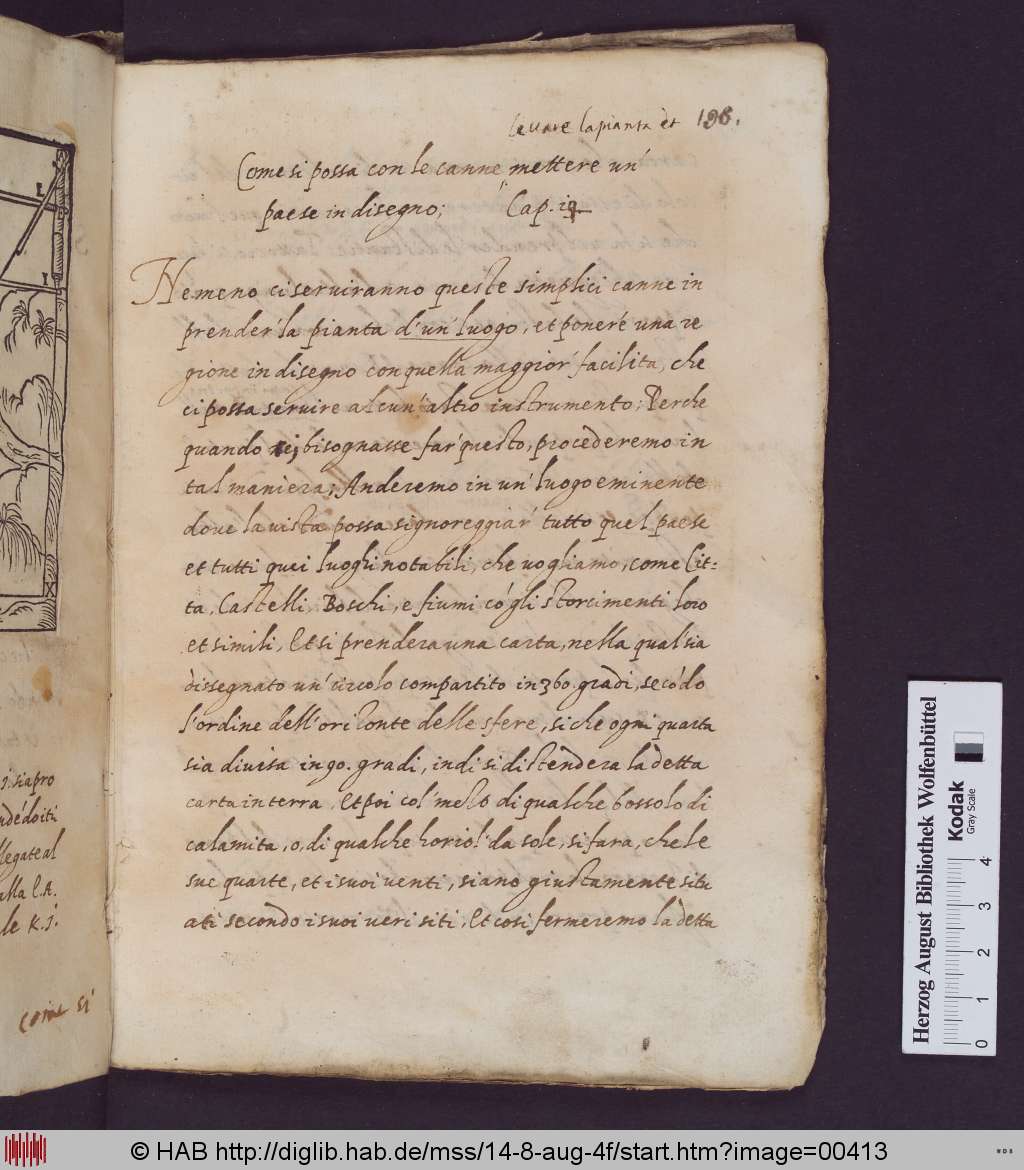 levare la pianta et 198.
Come si possa con le canne mettere un'
paese in disegno; Cap. 19
Ne meno ci serviranno queste simplici canne in
prender' la pianta d'un' luogo, et poner'e una re
gione in disegno con quella maggior' facilita, che
ci possa servire alcun' altro instrumento; Perche
quando bisognasse far' questo, procederemo in
tal maniera; Anderemo in un' luogo eminente
dove la vista possa signoreggiar' tutto quel paese
et tutti quei luoghi notabili, che vogliamo, come Cit:
ta, Castelli, Boschi, e fiumi có gli storcimenti loro
et simili, Et si prendera una carta, nella qual sia
dissegnato un' circolo compartito in 360. gradi, secódo
l'ordine dell'orizonte delle sfere, si che ogni quarta
sia divisa in 90. gradi, indi si distendera la detta
carta in terra, Et poi col' mezo di qualche bossolo di
calamita, o, di qualche horiol' da sole, si fara, che le
sue quarte, et i suoi venti, siano giustamente situ
ati secondo i suoi veri siti, Et cosi fermeremo la detta
J. sia pro
llegate al
alla C.A.
le K.J.
come si
Herzog August Bibliothek Wolfenbüttel
Kodak
Gray Scale
0 1 2 3 4
© HAB http://diglib.hab.de/mss/14-8-aug-4f/start.htm?image=00413